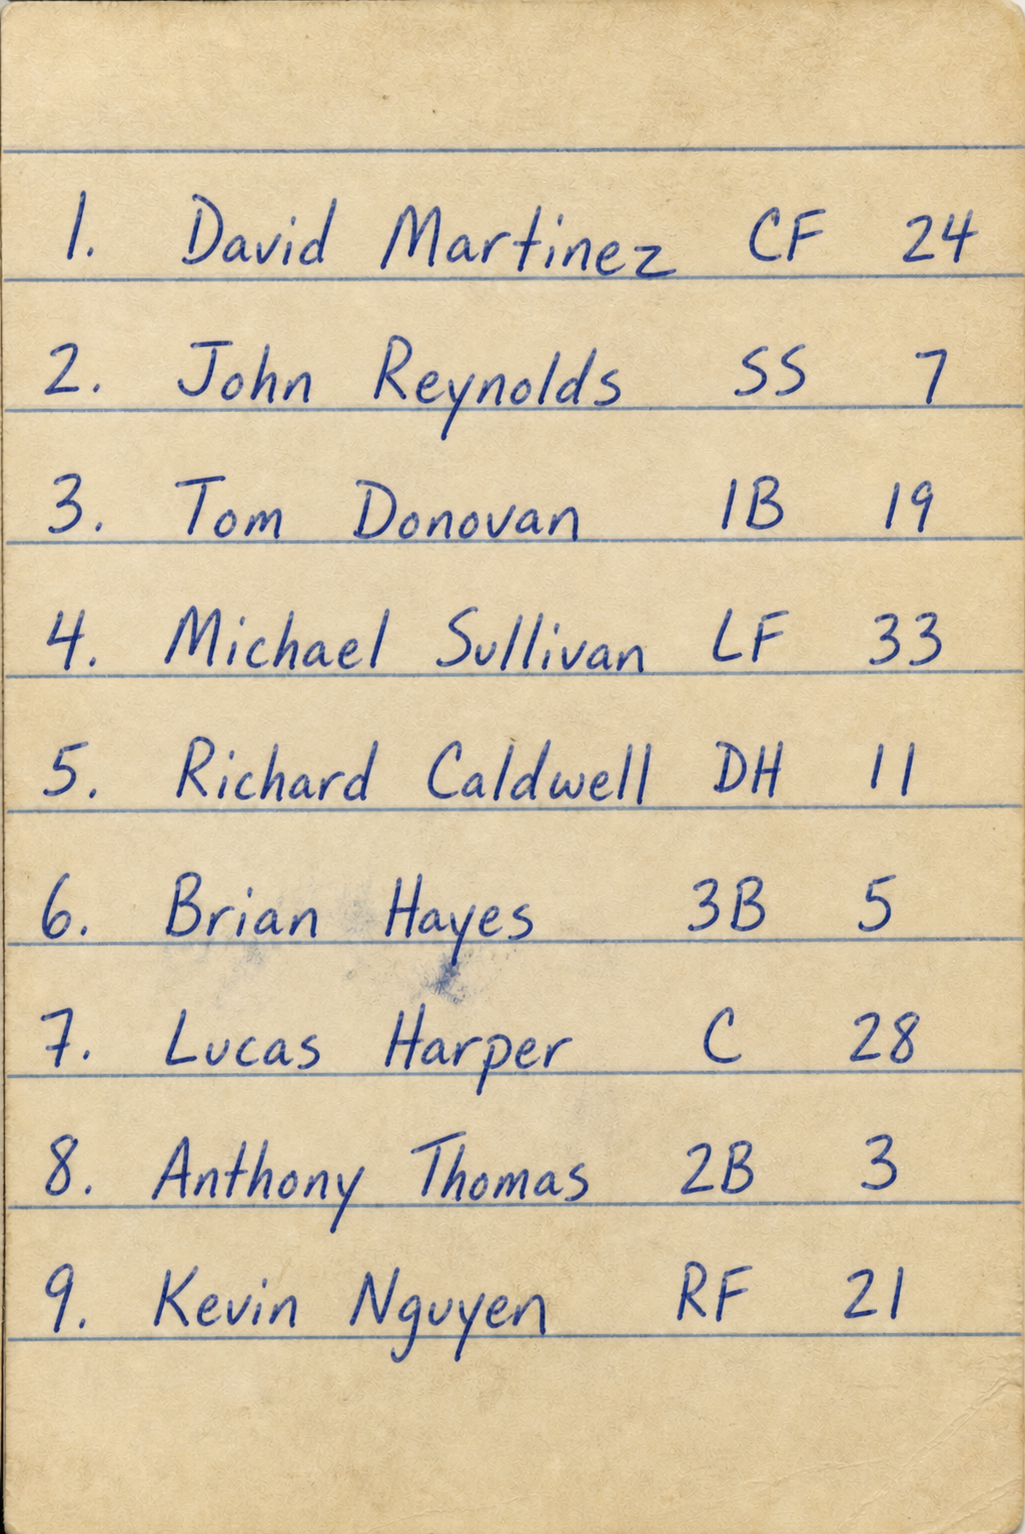 1. David Martinez CF 24
2. John Reynolds SS 7
3. Tom Donovan 1B 19
4. Michael Sullivan LF 33
5. Richard Caldwell DH 11
6. Brian Hayes 3B 5
7. Lucas Harper C 28
8. Anthony Thomas 2B 3
9. Kevin Nguyen RF 21